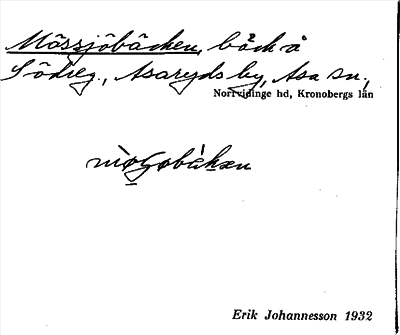 Mässjöbäcken, bäck å
Södreg., Asaryds by, Asa sn.,
Norrvidinge hd, Kronobergs län
Erik Johannesson 1932